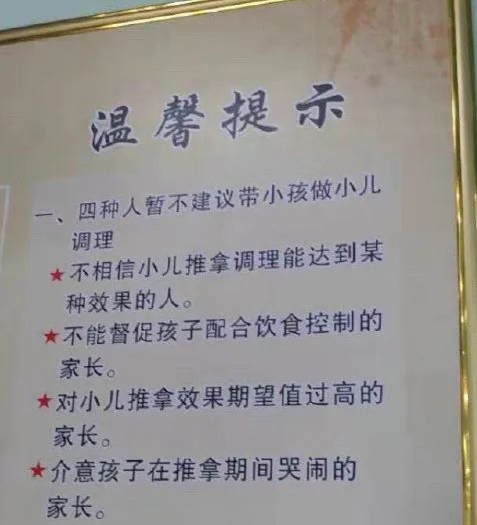 温馨提示
一、四种人暂不建议带小孩做小儿
调理
★不相信小儿推拿调理能达到某
种效果的人。
★不能督促孩子配合饮食控制的
家长。
★对小儿推拿效果期望值过高的
家长。
★介意孩子在推拿期间哭闹的
家长。